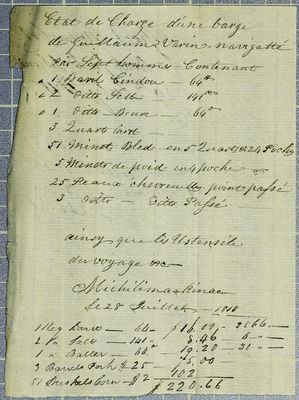 Etat de Charge d'une barge
de Guillaume Varin navigatté
Par Sept homme Contenant
1 Baril Cindou — 64
2 ditto Self — 141
1 ditto Beure — 64
3 Quart lard
51 Minots Bled en 5 Quarts & 24 Poches
5 Minots de poid en 4 poche
25 Peaux chevreuills point passé
3 ditto — ditto Passé
ainsy que les Ustensils
du voyage &c
Michilimakinac
le 28 Juillet — 1810
1 Keg — 64 — $16.00 — 256
2 " — 141 — 8.46 — 6
1 " Butter — 64 — 19.20 — 30
3 Barrels Pork $25 — 75.00
51 Bushels Corn — $2 102
$220.66